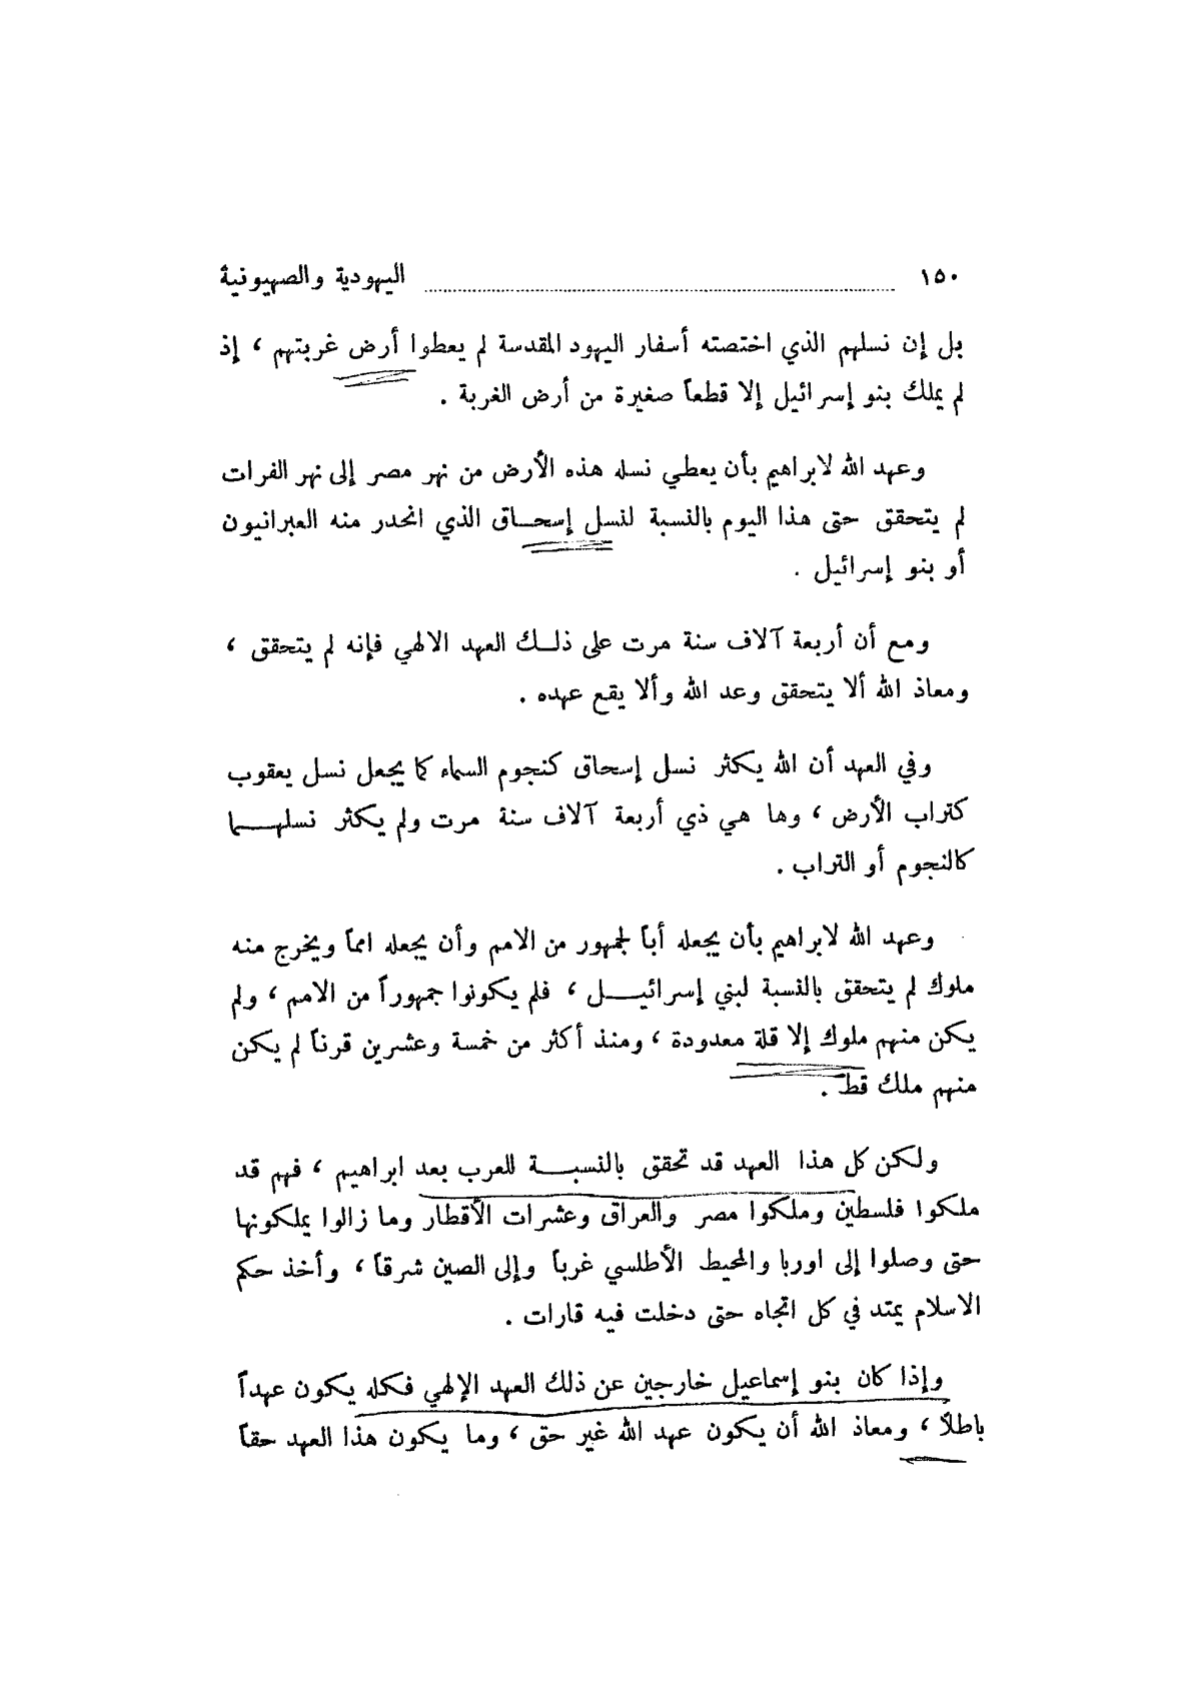 ١٥٠ اليهودية والصهيونية
بل إن نسلهم الذي اختصته أسفار اليهود المقدسة لم يعطوا أرض غربتهم ، إذ
لم يملك بنو إسرائيل إلا قطعاً صغيرة من أرض الغربة .
وعهد الله لابراهيم بأن يعطي نسله هذه الأرض من نهر مصر إلى نهر الفرات
لم يتحقق حتى هذا اليوم بالنسبة لنسل إسحـاق الذي انحدر منه العبرانيون
أو بنو إسرائيل .
ومع أن أربعة آلاف سنة مرت على ذلـك العهد الالهي فإنه لم يتحقق ،
ومعاذ الله ألا يتحقق وعد الله وألا يقع عهده .
وفي العهد أن الله يكثر نسل إسحاق كنجوم السماء كما يجعل نسل يعقوب
كتراب الأرض ، وها هي ذي أربعة آلاف سنة مرت ولم يكثر نسلهـــما
كالنجوم أو التراب .
وعهد الله لابراهيم بأن يجعله أباً لجمهور من الامم وأن يجعله امماً ويخرج منه
ملوك لم يتحقق بالنسبة لبني إسرائيـــل ، فلم يكونوا جمهوراً من الامم ، ولم
يكن منهم ملوك إلا قلة معدودة ، ومنذ أكثر من خمسة وعشرين قرناً لم يكن
منهم ملك قط .
ولكن كل هذا العهد قد تحقق بالنسبـــة للعرب بعد ابراهيم ، فهم قد
ملكوا فلسطين وملكوا مصر والعراق وعشرات الأقطار وما زالوا يملكونها
حتى وصلوا إلى اوربا والمحيط الأطلسي غرباً وإلى الصين شرقاً ، وأخذ حكم
الاسلام يمتد في كل اتجاه حتى دخلت فيه قارات .
وإذا كان بنو إسماعيل خارجين عن ذلك العهد الإلهي فكله يكون عهداً
باطلاً ، ومعاذ الله أن يكون عهد الله غير حق ، وما يكون هذا العهد حقاً